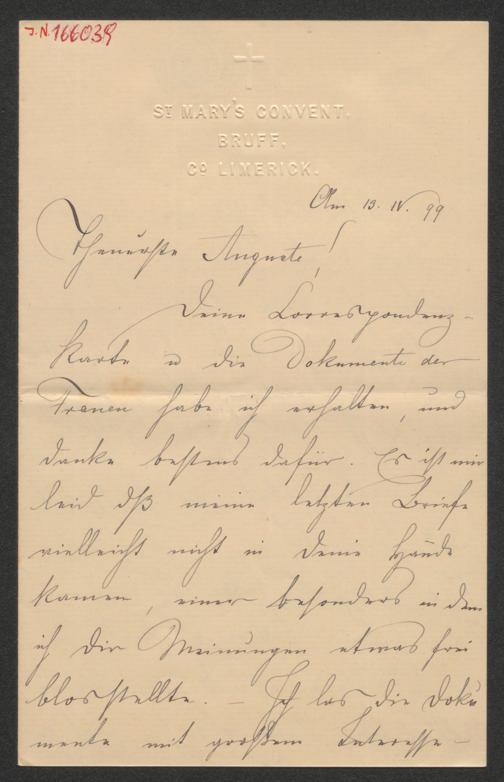 J.N. 166039
ST MARY'S CONVENT,
BRUFF,
CO LIMERICK.
Am 13. IV. 99
Theuerste Auguste!
Deine Correspondenz-
karte u die Dokumente der
Frauen habe ich erhalten, und
danke bestens dafür. Es ist mir
leid dß meine letzten Briefe
vielleicht nicht in Deine Hände
kamen, einer besonders in dem
ich Dir Meinungen etwas frei
blosstellte. – Ich las die Doku
mente mit großem Interesse –